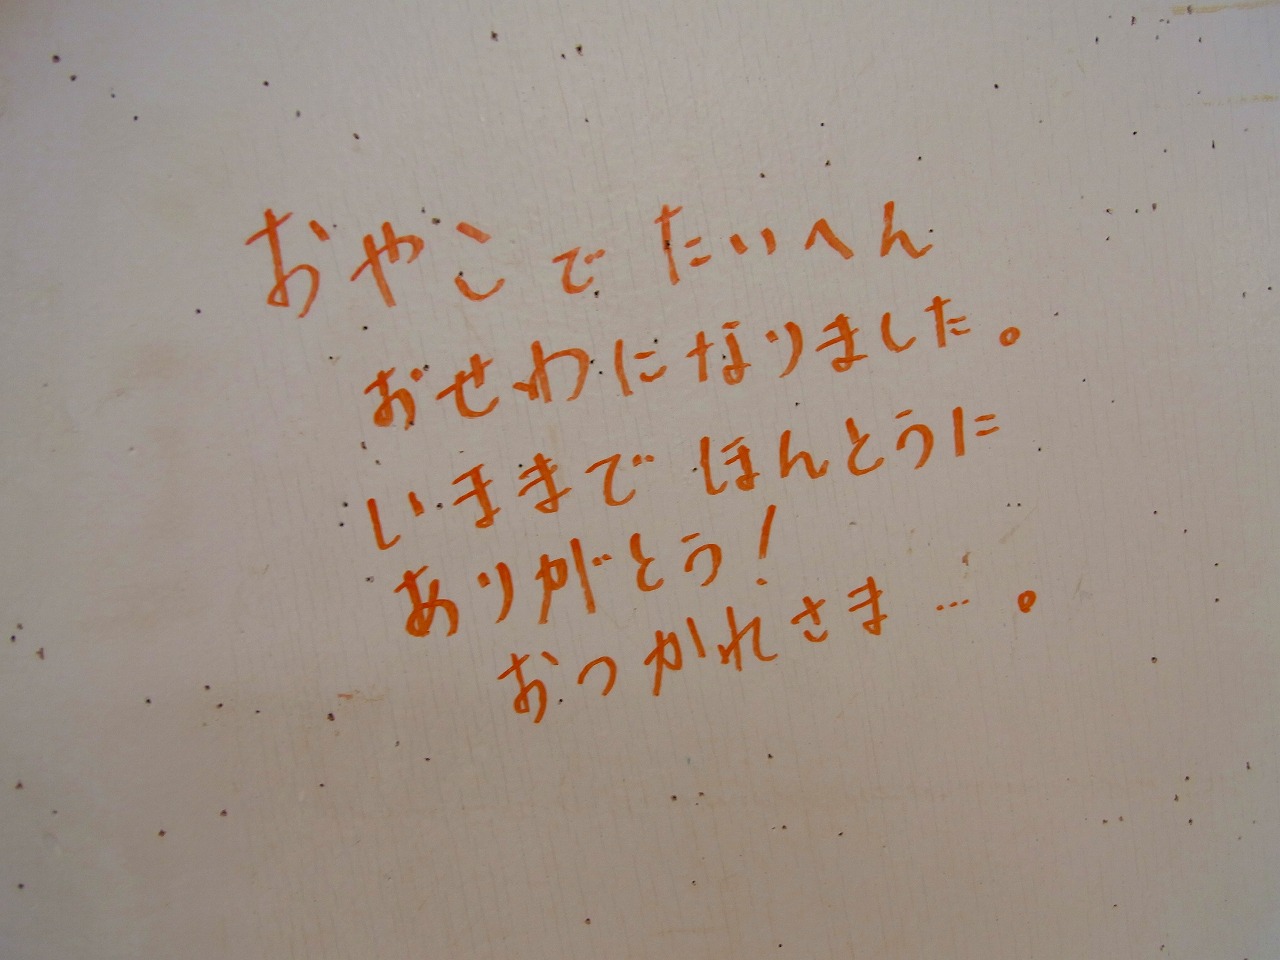 おやこで たいへん
おせわになりました。
いままで ほんとうに
ありがとう!
おつかれさま…。